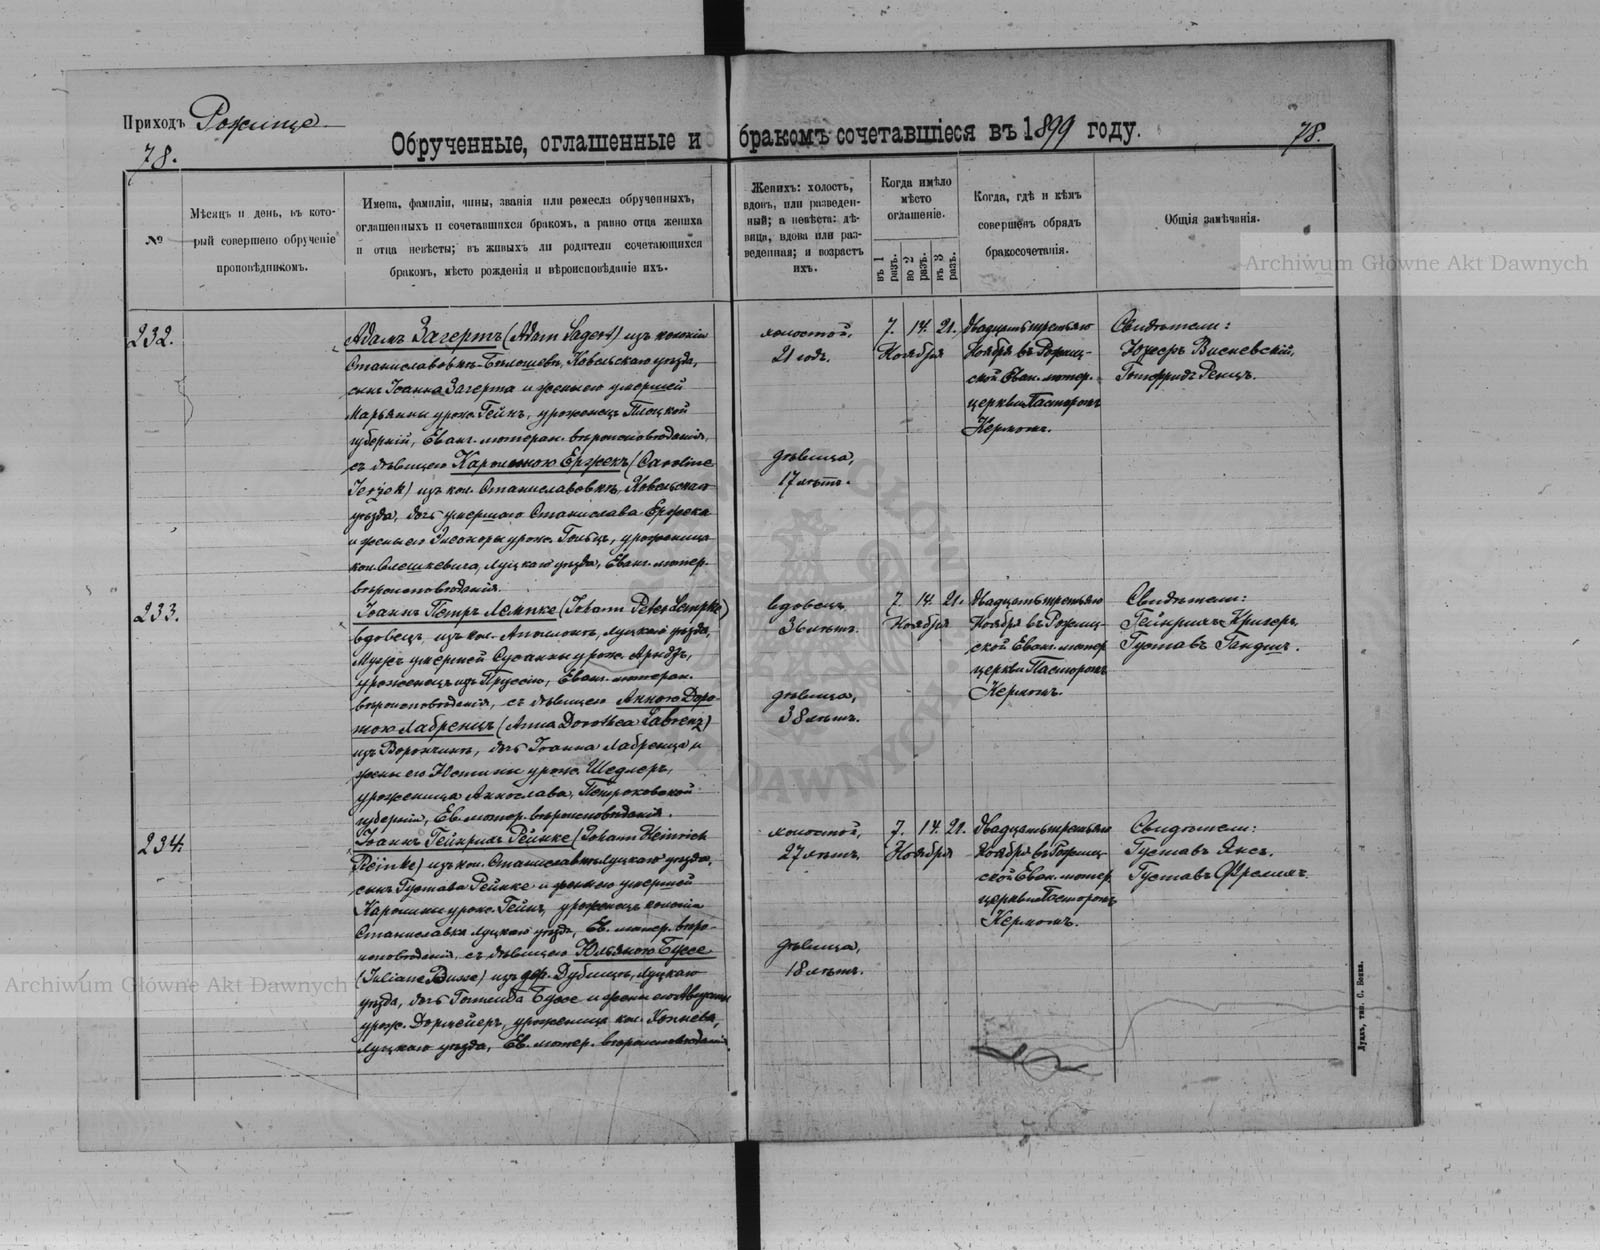 Приходъ Рожище
78.
Обрученные, оглашенные и бракомъ сочетавшіеся въ 1899 году.
78.
№
Мѣсяцъ и день, въ кото-
рый совершено обрученіе
проповѣдникомъ.
Имена, фамиліи, чины, званія или ремесла обрученныхъ,
оглашенныхъ и сочетавшихся бракомъ, а равно отца жениха
и отца невѣсты; въ живыхъ ли родители сочетающихся
бракомъ, мѣсто рожденія и вѣроисповѣданіе ихъ.
Женихъ: холостъ,
вдовъ, или разведен-
ный; а невѣста: дѣ-
вица, вдова или раз-
веденная; и возрастъ
ихъ.
Когда имѣло
мѣсто
оглашеніе.
въ 1 разъ.
во 2 разъ.
въ 3 разъ.
Когда, гдѣ и кѣмъ
совершёнъ обрядъ
бракосочетанія.
Общія замѣчанія.
232.
Адамъ Загертъ (Adam Sagert) изъ колоніи
Станиславовкѣ-Бѣлошевъ, Ковельскаго уѣзда,
сынъ Іоанна Загерта и жены его умершей
Марьянны урож. Гейнъ, уроженецъ Плоцкой
губерніи, Еванг. лютеран. вѣроисповѣданія,
съ дѣвицею Каролиною Ержекъ (Caroline
Jerzek) изъ кол. Станиславовкѣ, Ковельскаго
уѣзда, дочь умершаго Станислава Ержека
и жены его Элеоноры урож. Гольцъ, уроженица
кол. Олешкевича, Луцкаго уѣзда, Еванг. лютер.
вѣроисповѣданія.
холостой,
21 годъ.
дѣвица,
17 лѣтъ.
7. 14. 21.
Ноября
Двадцать третьяго
Ноября въ Рожищ-
ской Еван. лютер.
церкви Пасторомъ
Кермомъ.
Свидѣтели:
Юзефъ Висневскій,
Готфридъ Ренцъ.
233.
Іоаннъ Петръ Лемпке (Johann Peter Lempke)
вдовецъ, изъ кол. Аполонъ, Луцкаго уѣзда,
Мужъ умершей Сусанны урож. Арндтъ,
уроженецъ изъ Пруссіи, Еванг. лютеран.
вѣроисповѣданія, съ дѣвицею Анною Доро-
теою Лабренцъ (Anna Dorothea Labrenz)
изъ Ворончина, дочь Іоанна Лабренца и
жены его Юстины урож. Шедлеръ,
уроженица Аннослава, Петроковской
губерніи, Ев. лютер. вѣроисповѣданія.
вдовецъ
36 лѣтъ.
дѣвица,
38 лѣтъ.
7. 14. 21.
Ноября
Двадцать третьяго
Ноября въ Рожищ-
ской Еванг. лютер.
церкви Пасторомъ
Кермомъ.
Свидѣтели:
Гейнрихъ Кригеръ,
Густавъ Гандшъ.
234.
Іоаннъ Гейнрихъ Рейнке (Johann Heinrich
Reinke) изъ кол. Станиславки Луцкаго уѣзда,
сынъ Густава Рейнке и жены его умершей
Каролины урож. Гейнъ, уроженецъ колоніи
Станиславка Луцкаго уѣзда, Ев. лютер. вѣро-
исповѣданія, съ дѣвицею Юльяною Буссе
(Juliane Busse) изъ дер. Дубищъ, Луцкаго
уѣзда, дочь Готлиба Буссе и жены его Августы
урож. Дормейеръ, уроженица кол. Копчева,
Луцкаго уѣзда, Ев. лютер. вѣроисповѣданія.
холостой,
27 лѣтъ.
дѣвица,
18 лѣтъ.
7. 14. 21.
Ноября
Двадцать третьяго
Ноября въ Рожищ-
ской Еван. лютер.
церкви Пасторомъ
Кермомъ.
Свидѣтели:
Густавъ Янсъ.
Густавъ Фрелихъ.
Луцкъ, тип. С. Бонка.
Archiwum Główne Akt Dawnych
Archiwum Główne Akt Dawnych